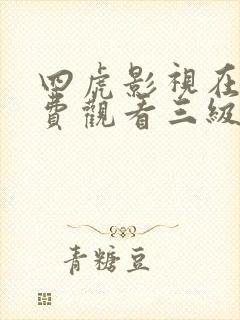 四虎影視在
費觀看三級
青糖豆